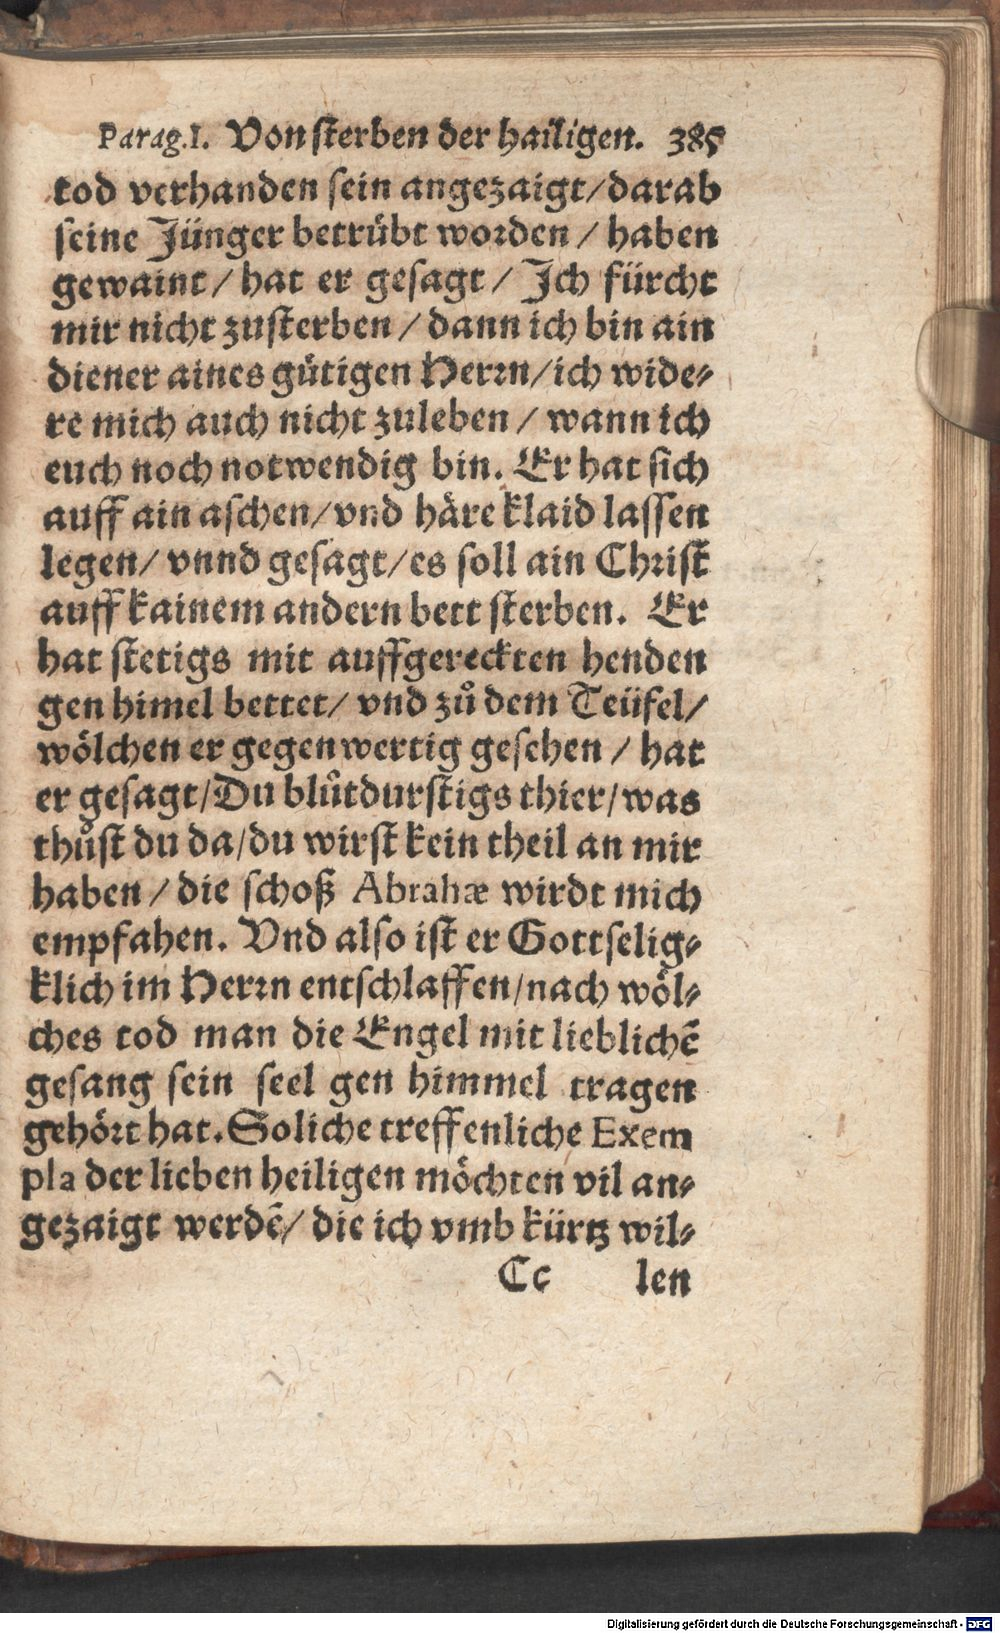 Parag.I. Von sterben der hailigen. 385
tod verhanden sein angezaigt/darab
seine Jünger betrübt worden / haben
gewaint / hat er gesagt / Ich fürcht
mir nicht zusterben / dann ich bin ain
diener aines gütigen Herrn/ich wide-
re mich auch nicht zuleben / wann ich
euch noch notwendig bin. Er hat sich
auff ain aschen/vnd häre klaid lassen
legen/ vnnd gesagt/es soll ain Christ
auff kainem andern bett sterben. Er
hat stetigs mit auffgereckten henden
gen himel bettet/ vnd zů dem Teüfel/
wölchen er gegenwertig gesehen / hat
er gesagt/Du blůtdurstigs thier/was
thůst du da/du wirst kein theil an mir
haben / die schoß Abrahæ wirdt mich
empfahen. Vnd also ist er Gottselig-
klich im Herrn entschlaffen/nach wöl-
ches tod man die Engel mit lieblichē
gesang sein seel gen himmel tragen
gehört hat. Soliche treffenliche Exem
pla der lieben heiligen möchten vil an-
gezaigt werdē/ die ich vmb kürtz wil-
Cc len
Digitalisierung gefördert durch die Deutsche Forschungsgemeinschaft - DFG